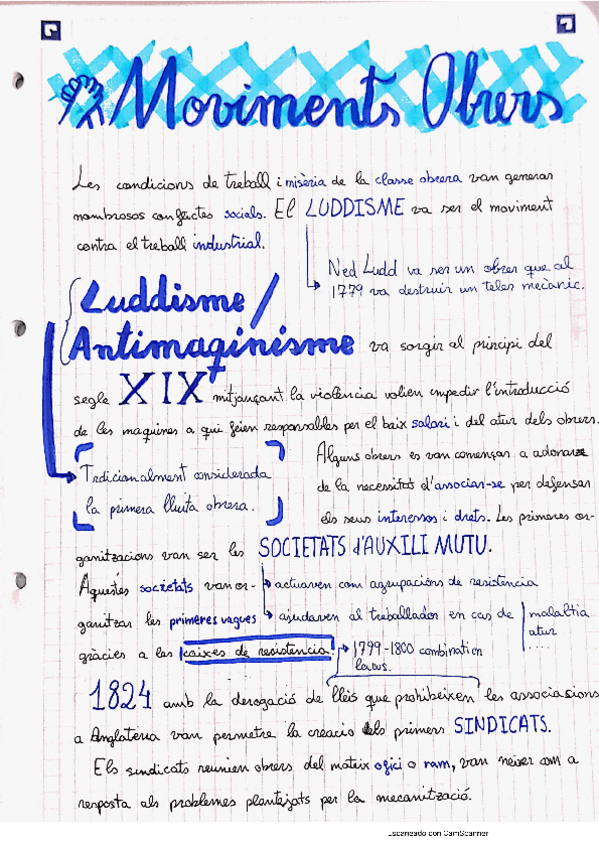 Moviments Obrers
Les condicions de treball i misèria de la classe obrera van generar
nombrosos conflictes socials. El LUDDISME va ser el moviment
contra el treball industrial.
Ned Ludd va ser un obrer que al
1779 va destruir un teler mecànic.
Luddisme /
Antimaquinisme va sorgir al principi del
segle XIX mitjançant la violència volien impedir l'introducció
de les maquines a qui feien responsables per el baix salari i del atur dels obrers.
Tradicionalment considerada
la primera lluita obrera.
Alguns obrers es van començar a adonar
de la necessitat d'associar-se per defensar
els seus interessos i drets. Les primeres or-
ganitzacions van ser les SOCIETATS d'AUXILI MUTU.
Aquestes societats van or-
ganitzar les primeres vagues
gràcies a les caixes de resistència.
actuaven com agrupacions de resistència
ajudaven al treballador en cas de malaltia
atur
....
1799-1800 combination
laws.
1824 amb la derogació de lleis que prohibeixen les associasions
a Anglaterra van permetre la creació dels primers SINDICATS.
Els sindicats reunien obrers del mateix ofici o ram, van neixer com a
resposta als problemes plantejats per la mecanització.
Escaneado con CamScanner